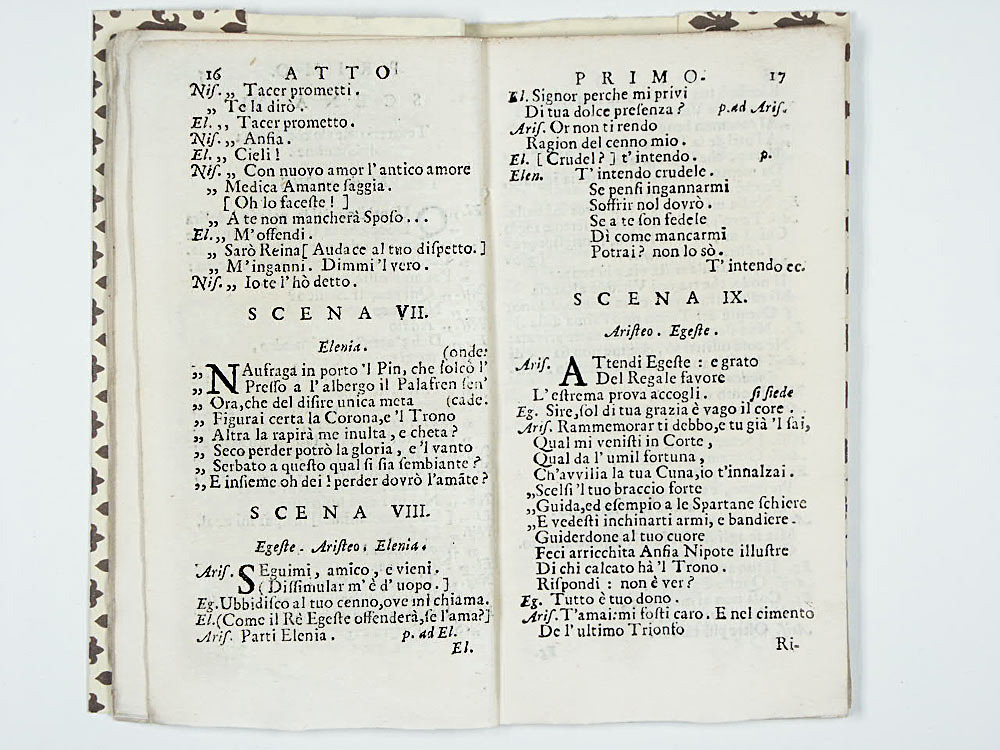 16 ATTO
Niſ. ,, Tacer prometti.
,, Te la dirò.
El. ,, Tacer prometto.
Niſ. ,, Anfia.
El. ,, Cieli!
Niſ. ,, Con nuovo amor l'antico amore
,, Medica Amante ſaggia.
[Oh lo faceſte!]
,, A te non mancherà Spoſo...
El. ,, M'offendi.
,, Sarò Reina [Audace al tuo diſpetto.]
,, M'inganni. Dimmi 'l vero.
Niſ. ,, Io te l'hò detto.
SCENA VII.
Elenia.
(onde:
,, NAufraga in porto 'l Pin, che ſolcò l'
,, Preſſo a l'albergo il Palafren ſen'
,, Ora, che del diſire unica meta (cade.
,, Figurai certa la Corona, e 'l Trono
,, Altra la rapirà me inulta, e cheta?
,, Seco perder potrò la gloria, e 'l vanto
,, Serbato a queſto qual ſi ſia ſembiante?
,, E inſieme oh dei! perder dovrò l'amãte?
SCENA VIII.
Egeſte. Ariſteo, Elenia.
Ariſ. SEguimi, amico, e vieni.
(Diſſimular m'è d'uopo.]
Eg. Ubbidiſco al tuo cenno, ove mi chiama.
El. (Come il Rè Egeſte offenderà, ſe l'ama?]
Ariſ. Parti Elenia. p. ad El.
El.
PRIMO. 17
El. Signor perche mi privi
Di tua dolce preſenza? p. ad Ariſ.
Ariſ. Or non ti rendo
Ragion del cenno mio.
El. [Crudel?] t'intendo. p.
Elen. T'intendo crudele.
Se penſi ingannarmi
Soffrir nol dovrò.
Se a te ſon fedele
Dì come mancarmi
Potrai? non lo sò.
T'intendo ec.
SCENA IX.
Ariſteo. Egeſte.
Ariſ. ATtendi Egeſte: e grato
Del Regale favore
L'eſtrema prova accogli. ſi ſiede
Eg. Sire, ſol di tua grazia è vago il core.
Ariſ. Rammemorar ti debbo, e tu già 'l ſai,
Qual mi veniſti in Corte,
Qual da l'umil fortuna,
Ch'avvilia la tua Cuna, io t'innalzai.
,, Scelſi 'l tuo braccio forte
,, Guida, ed eſempio a le Spartane ſchiere
,, E vedeſti inchinarti armi, e bandiere.
Guiderdone al tuo cuore
Feci arricchita Anfia Nipote illuſtre
Di chi calcato hà 'l Trono.
Riſpondi: non è ver?
Eg. Tutto è tuo dono.
Ariſ. T'amai: mi foſti caro. E nel cimento
De l'ultimo Trionfo
Ri-